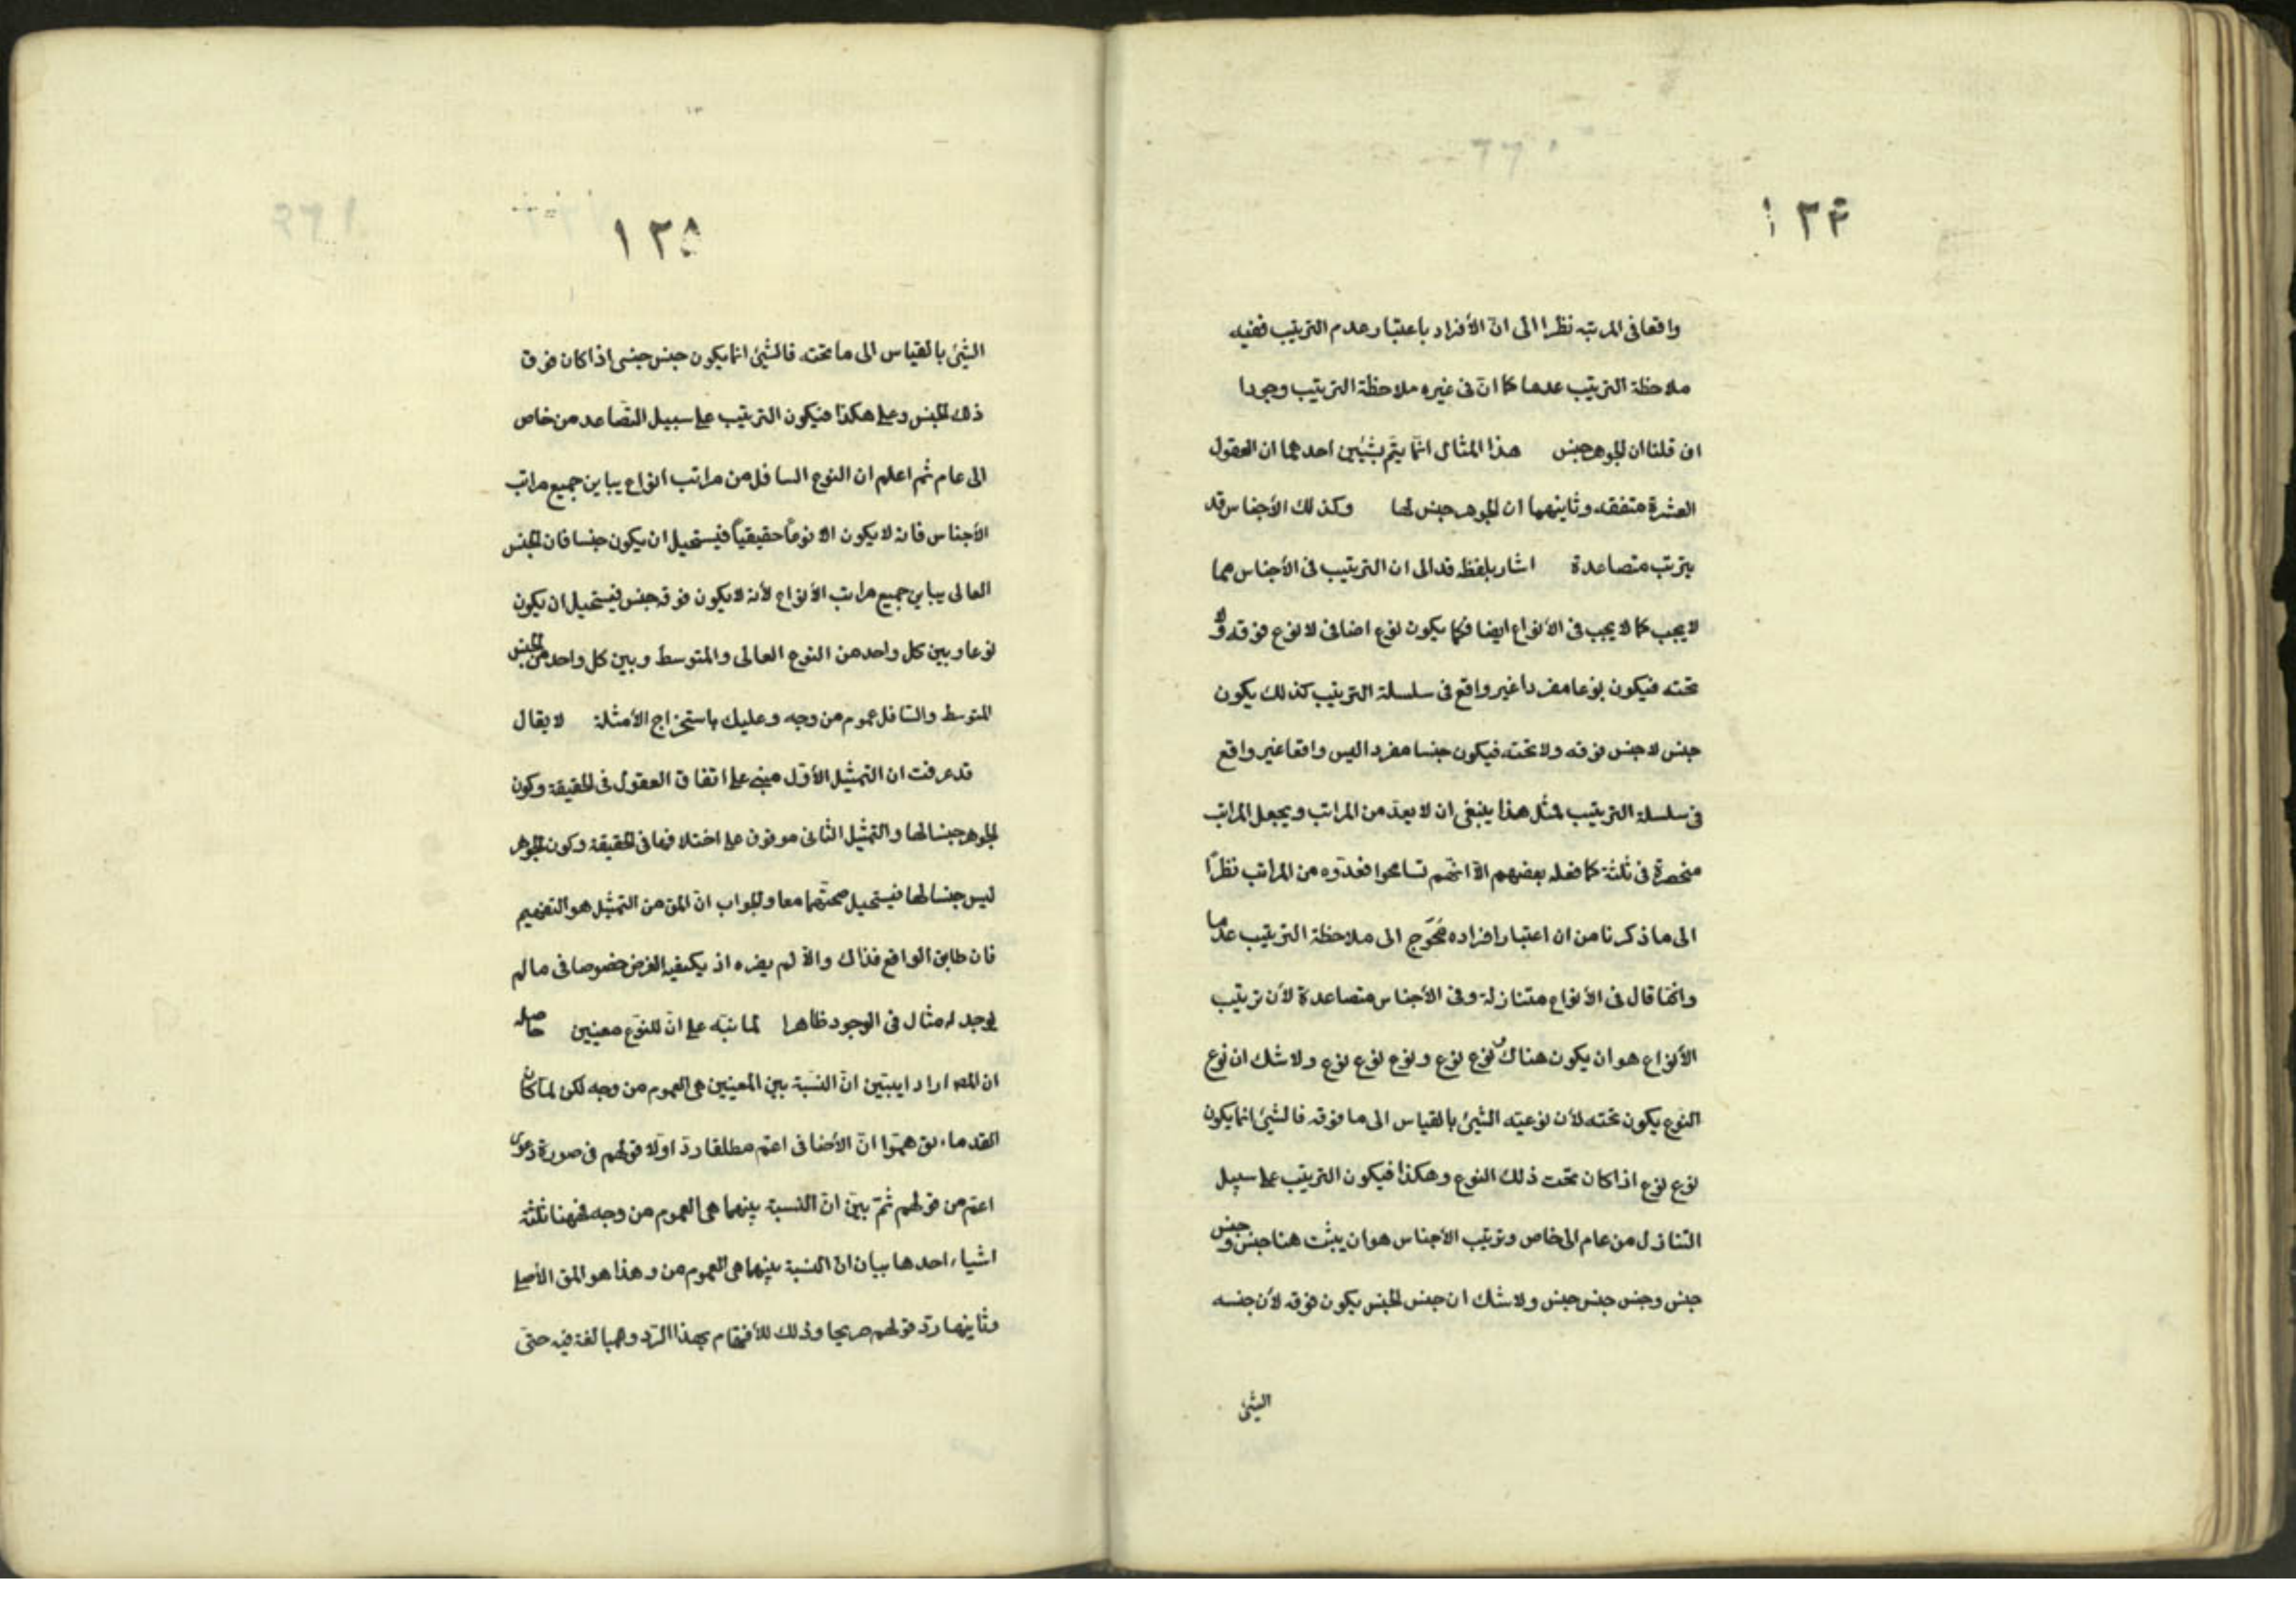 ١٢٤
واقعا فى المرتبه نظرا الى انّ الأفراد باعتبار عدم الترتيب ففيه
ملاحظة الترتيب عدما كما انّ فى غيره ملاحظة الترتيب وجودا
ان قلنا ان الجوهر جنس هذا المثال انّما يتمّ بشيئين احدهما ان العقول
العشرة متفقه وثانيهما ان الجوهر جنس لها وكذلك الأجناس قد
يترتب متصاعدة اشار بلفظ قد الى ان الترتيب فى الأجناس مما
لا يجب كما لا يجب فى الأنواع ايضا فكما يكون نوع اضافى لا نوع فوقه ولا
تحته فيكون نوعا مفردا غير واقع فى سلسلة الترتيب كذلك يكون
جنس لا جنس فوقه ولا تحته فيكون جنسا مفردا ليس واقعا غير واقع
فى سلسلة الترتيب لمثل هذا ينبغى ان لا يعدّ من المراتب ويجعل المراتب
منحصرة فى ثلثة كما فعله بعضهم الّا انّهم تسامحوا فعدّوه من المراتب نظرًا
الى ما ذكرنا من ان اعتبار افراده مُحَوّج الى ملاحظة الترتيب عدما
وانّما قال فى الأنواع متنازلة وفى الأجناس متصاعدة لأن ترتيب
الأنواع هو ان يكون هناك نوع نوع ونوع نوع نوع ولا شك ان نوع
النوع يكون تحته لأن نوعيته الشيئ بالقياس الى ما فوقه فالشيئ انما يكون
نوع نوع اذا كان تحت ذلك النوع وهكذا فيكون الترتيب على سبيل
التنازل من عام الى خاص وترتيب الأجناس هو ان يثبت هنا جنس وجنس
جنس وجنس جنس جنس ولا شك ان جنس الجنس يكون فوقه لأن جنسه
الشيئ
١٢٥
الشيئ بالقياس الى ما تحته فالشيئ انما يكون جنس جنس اذا كان فوق
ذلك الجنس وعلى هكذا فيكون الترتيب على سبيل التصاعد من خاص
الى عام ثم اعلم ان النوع السافل من مراتب انواع يباين جميع مراتب
الأجناس فانه لا يكون الا نوعًا حقيقيًا فيستحيل ان يكون جنسا فان الجنس
العالى يباين جميع مراتب الأنواع لأنه لا يكون فوقه جنس فيستحيل ان يكون
نوعا وبين كل واحد من النوع العالى والمتوسط وبين كل واحد من الجنس
المتوسط والسّافل عموم من وجه وعليك باستخراج الأمثلة لا يقال
قد عرفت ان التمثيل الأوّل مبنى على اتفاق العقول فى الحقيقة وكون
الجوهر جنسا لها والتمثيل الثانى موقوف على اختلافها فى الحقيقة وكون الجوهر
ليس جنسا لها فيستحيل صحتهما معا والجواب انّ المق من التمثيل هو التفهيم
فان طابق الواقع فذاك والّا لم يضره اذ يكفيه الفرض خصوصا فى ما لم
يوجد له مثال فى الوجود ظاهرا لما نبّه على انّ للنوّع معنيين حاصله
ان المصـ اراد ايبيّن انّ النسبة بين المعنيين هى العموم من وجه لكن لمّا كان
القدماء توهّموا انّ الأضافى اعمّ مطلقا ردّ اولا قولهم فى صورة دعوى
اعمّ من قولهم ثمّ بيّن انّ النسبة بينهما هى العموم من وجه فههنا ثلثة
اشياء احدها بيان انّ النسبة بينهما هى العموم من وهذا هو المق الأصلى
وثانيها ردّ قولهم صريحا وذلك للأهتمام بهذا الرّد ومبالغة فيه حتّى